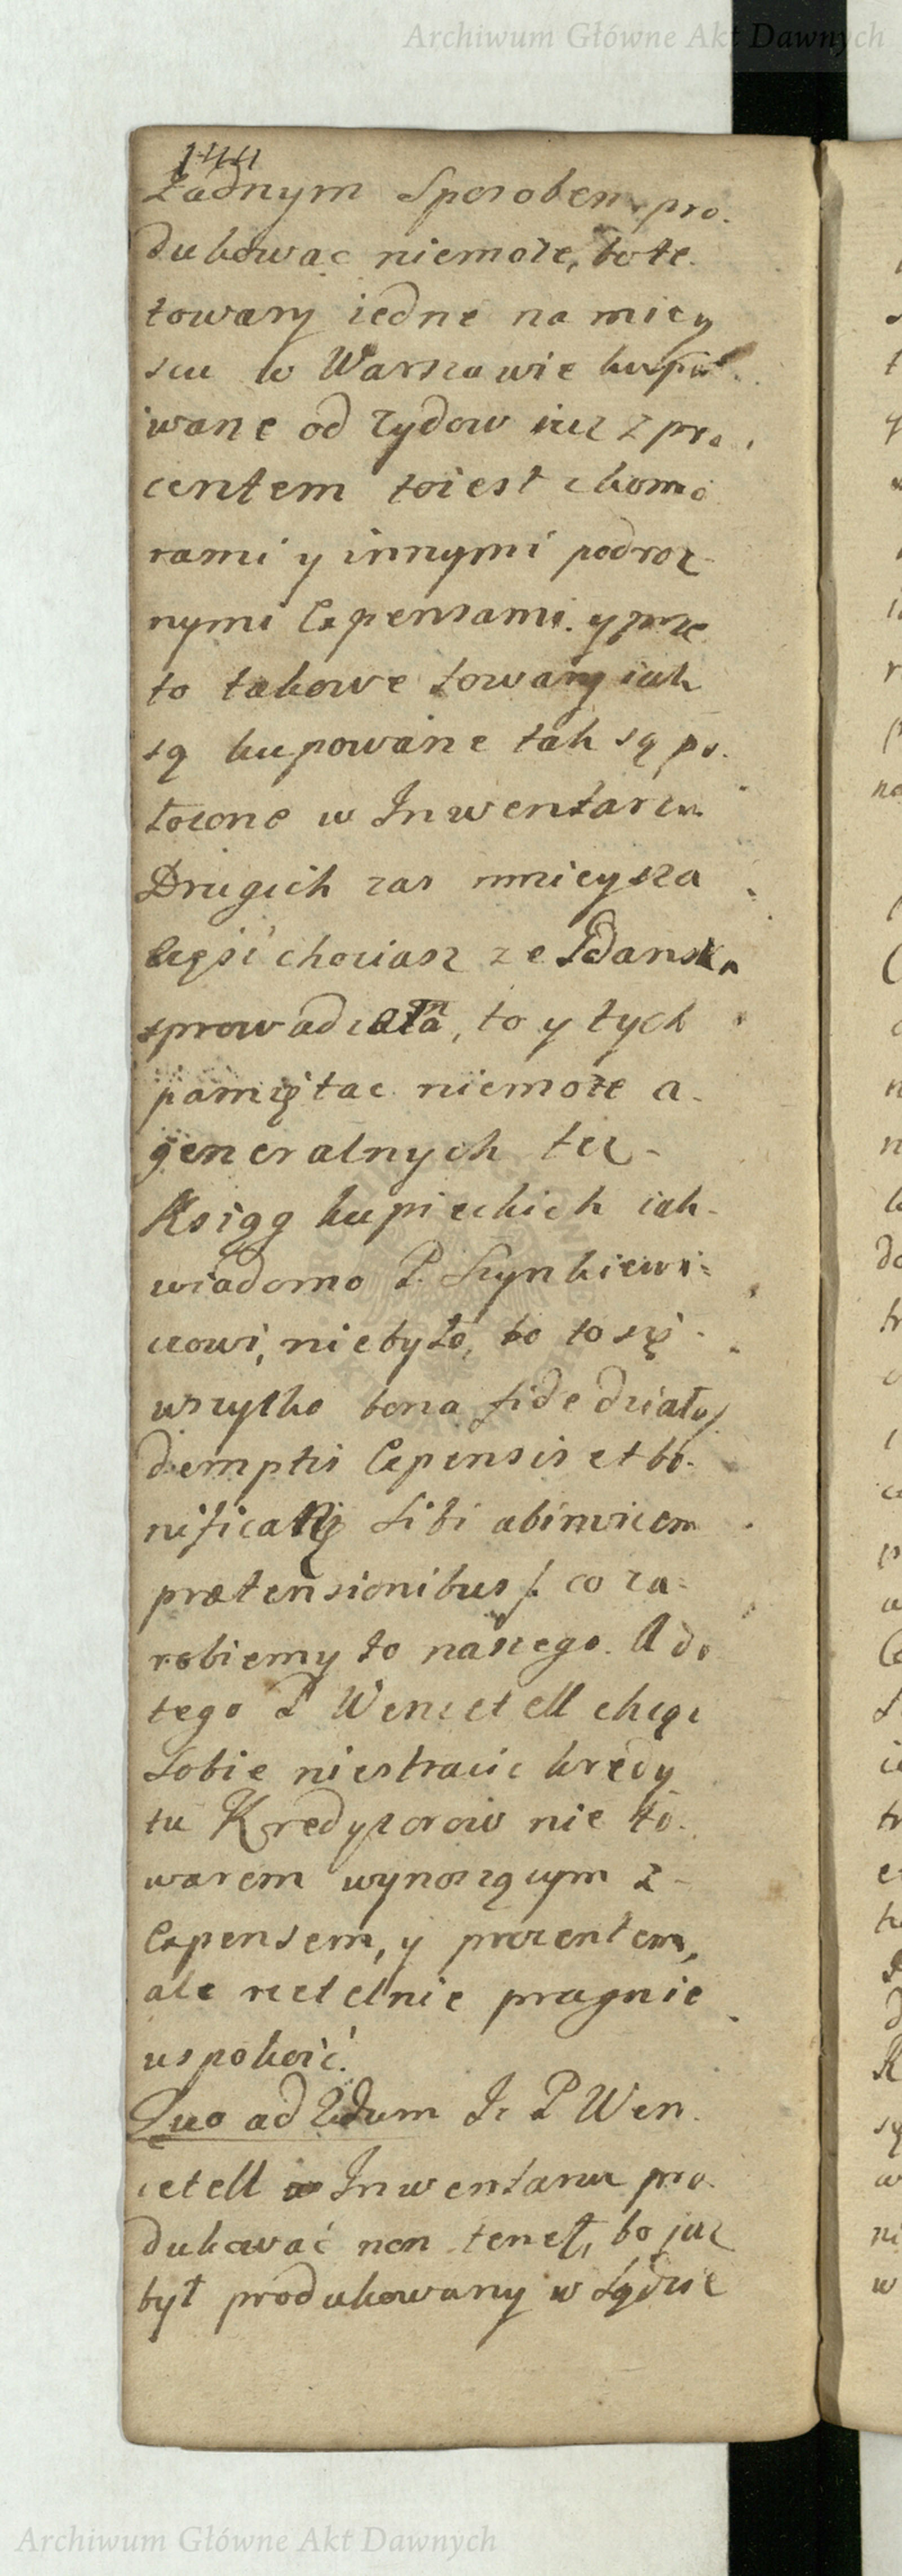 Archiwum Główne Akt Dawnych
144
Zadnym Sposobem pro.
dukowac niemoże, bo te
towary iedne na miey
scu w Warszawie kupo
wane od Zydow iuz z pro
centem toiest z komo
rami y innymi podroz
nymi Expensami. y prze
to takowe towary iak
są kupowane tak są po.
łozone w Inwentarzu
Drugich zas mnieysza
częsć chociasz ze Gdanska
sprowadzona, to y tych
pamiętac niemoże a
generalnych tez
Ksiąg kupieckich iak
wiadomo P. Szynkiewi=
czowi, niebyło, bo to się
wszytko bona fide działo/
demptis Expensis et bo.
nificatis Sibi abinvicem
prætensionibus /. co za=
robiemy to naszego. A do
tego P Wencetell chcąc
Sobie niestracic kredy
tu Kredytorow nie to.
warem wynoszącym z
Expensem, y procentem,
ale rzetelnie pragnie
uspokoić.
Quo ad 2dum Jc P Wen.
cetell Inwentarza pro.
dukować non tenet, bo juz
był produkowany w Sądzie
Archiwum Główne Akt Dawnych